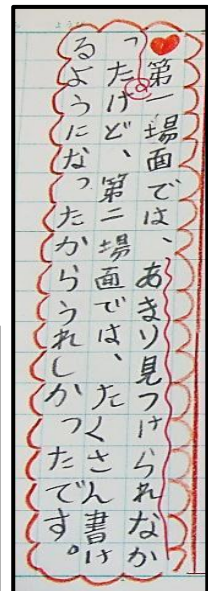 第一場面では、あまり見つけられなか
ったけど、第二場面では、たくさん書け
るようになったからうれしかったです。